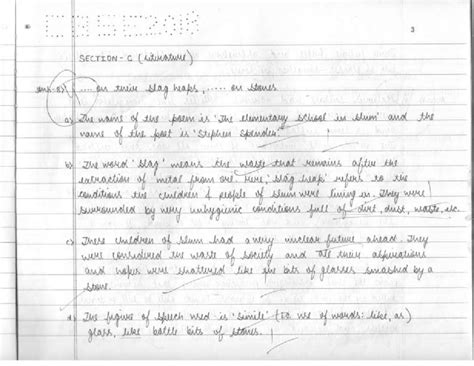 CBSE2018
3
SECTION-C (Literature)
ans-8) "....on their slag heaps, ..... on stones
a) The name of the poem is 'The elementary school in slum' and the
name of the poet is 'Stephen Spender.'
b) The word 'slag' means the waste that remains after the
extraction of metal from ore. Here, 'slag heap' refers to the
conditions the children & people of slum were living in. They were
surrounded by very unhygienic conditions full of dirt, dust, waste, etc.
c) These children of slum had a very unclear future ahead. They
were considered the waste of society and all their aspirations
and hopes were shattered like the bits of glasses smashed by a
stone.
d) The figure of speech used is 'simile' (to use of words: like, as)
glass, like bottle bits of stones.